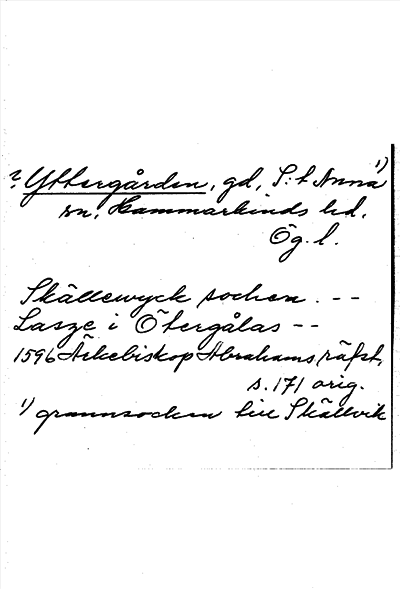 ? Yttergården, gd, S:t Anna 1)
sn, Hammarkinds hd,
Ög. l.
Skällewyck sochen. --
Lasze i Ötergålas --
1596 Ärkebiskop Abrahams räfst,
s. 171 orig.
1) grannsocken till Skällvik